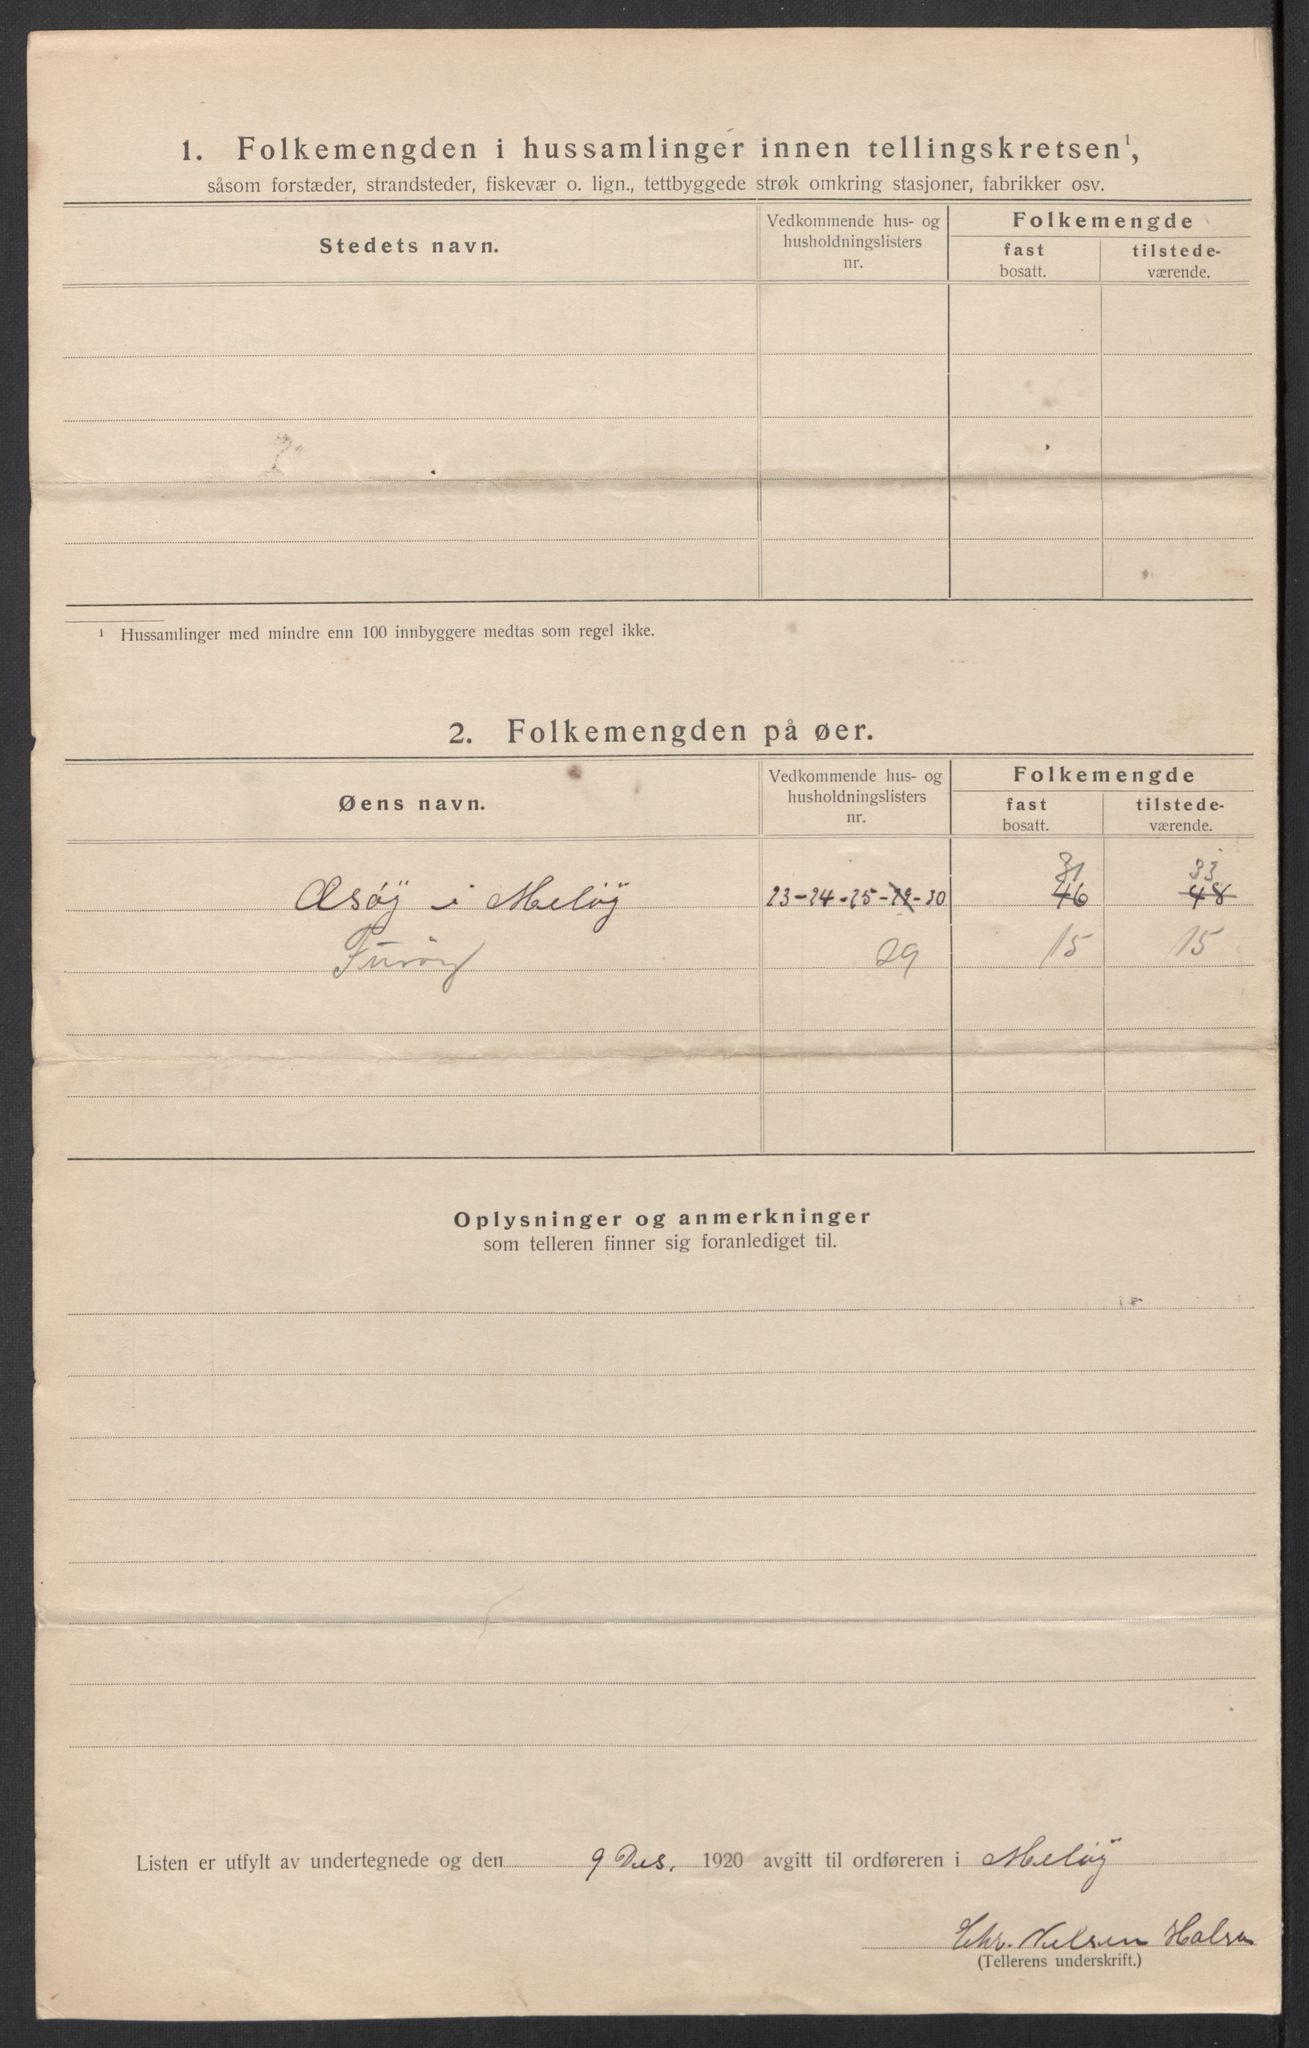 1. Folkemengden i hussamlinger innen tellingskretsen¹,
såsom forstæder, strandsteder, fiskevær o. lign., tettbyggede strøk omkring stasjoner, fabrikker osv.
Stedets navn.
Vedkommende hus- og
husholdningslisters
nr.
Folkemengde
fast
bosatt.
tilstede-
værende.
¹ Hussamlinger med mindre enn 100 innbyggere medtas som regel ikke.
2. Folkemengden på øer.
Øens navn.
Vedkommende hus- og
husholdningslisters
nr.
Folkemengde
fast
bosatt.
tilstede-
værende.
31 33
Æsøy i Meløy 23-24-25-29-30 46 48
Furöy 29 15 15
Oplysninger og anmerkninger
som telleren finner sig foranlediget til.
Listen er utfylt av undertegnede og den 9 Des. 1920 avgitt til ordføreren i Meløy
Chr. Nielsen Halsa
(Tellerens underskrift.)